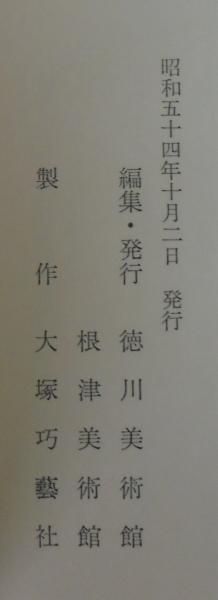 昭和五十四年十月二日　発行
編集・発行　徳川美術館
根津美術館
製作　大塚巧藝社